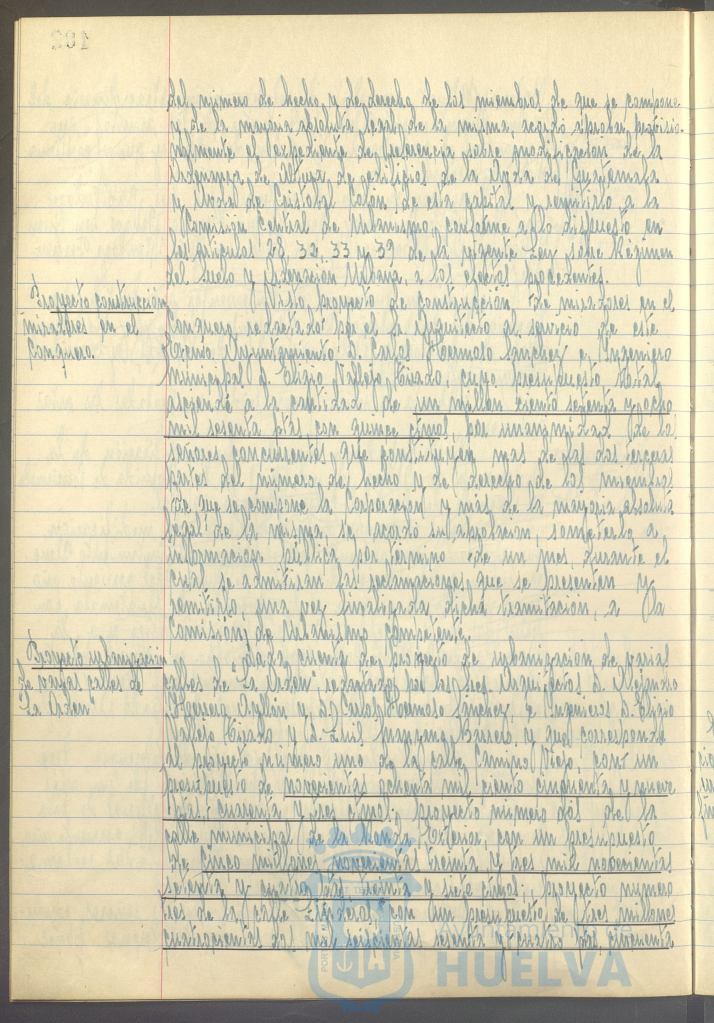 del número de hecho y de derecho de los miembros de que se compone
y de la mayoria absoluta legal de la misma, acordó aprobar provisio-
nalmente el expediente de referencia sobre modificacion de la
Ordenanza de Altura de edificios de la Avda de Guatemala
y Avda de Cristobal Colón de esta capital y remitirlo a la
Comisión Central de Urbanismo, conforme a lo dispuesto en
los articulos 28, 32, 33 y 39 de la vigente Ley sobre Régimen
del Suelo y Ordenación Urbana, a los efectos procedentes.
Proyecto construccion
miradores en el
Conquero.
Visto proyecto de construccion de miradores en el
Conquero redactado por el Sr Arquitecto al servicio de este
Excmo Ayuntamiento D. Carlos Hermoso Sanchez e Ingeniero
municipal D. Eligio Vallejo Tirado, cuyo presupuesto total
asciende a la cantidad de un millon ciento setenta y ocho
mil sesenta ptas con quince ctmos, por unanimidad de los
señores concurrentes que constituyen mas de las dos terceras
partes del número de hecho y de derecho de los miembros
de que se compone la Corporación y mas de la mayoria absoluta
legal de la misma, se acordó su aprobacion, someterlo a
informacion pública por término de un mes, durante el
cual se admitiran las reclamaciones que se presenten y
remitirlo, una vez finalizada dicha tramitacion, a la
Comision de Urbanismo competente.
Proyecto urbanizacion
de varias calles de
"La Orden"
Dada cuenta de proyecto de urbanizacion de varias
calles de "La Orden", redactados por los Sres Arquitectos D. Alejandro
Herrero Ayllón y D. Carlos Hermoso Sanchez, e Ingenieros D. Eligio
Vallejo Tirado y D. Luis y que corresponde
al proyecto número uno de la calle Camino Viejo, con un
presupuesto de novecientas ochenta mil ciento cincuenta y nueve
ptas cuarenta y tres ctmos; proyecto número dos de la
calle municipal de la Ronda Exterior, con un presupuesto
de cinco millones novecientas treinta y tres mil novecientas
setenta y cuatro ptas treinta y siete ctmos; proyecto numero
tres de la calle con un presupuesto de tres millones
cuatrocientas dos mil seiscientas sesenta y cuatro ptas cincuenta
Ayuntamiento de
HUELVA